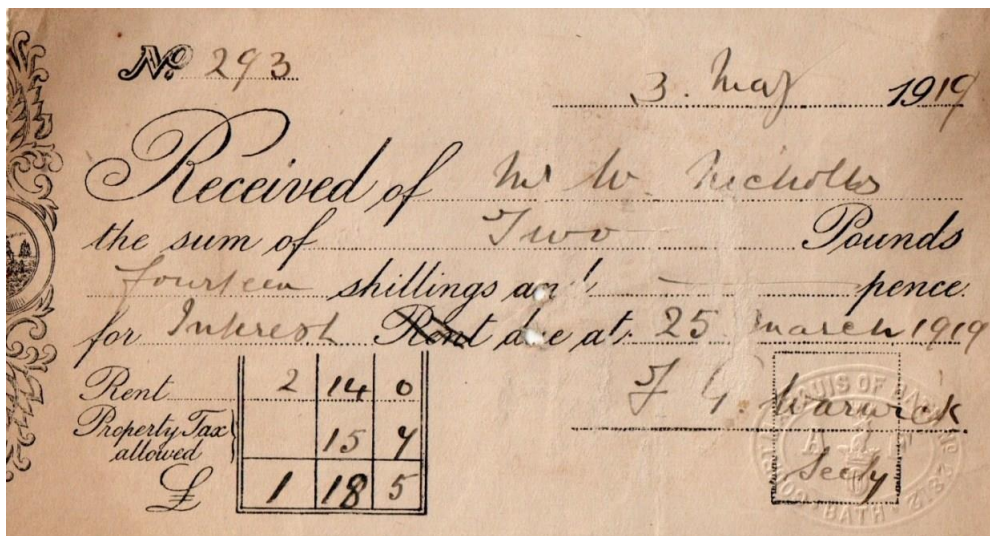 No 293
3. May 1919
Received of Mr W. Nicholls
the sum of Two Pounds
fourteen shillings and — pence.
for Interest Rent due at 25 March 1919
Rent 2 14 0
F G Warwick
Property Tax allowed 15 7
Secty
£ 1 18 5
BATH